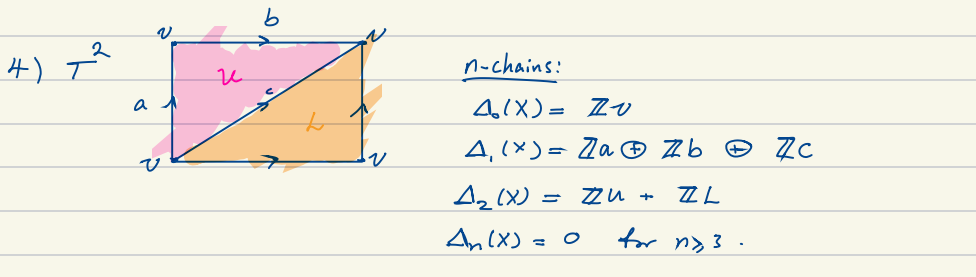 4) T²
v b v
u
a c
L
v v
n-chains:
Δ₀(X) = ℤv
Δ₁(X) = ℤa ⊕ ℤb ⊕ ℤc
Δ₂(X) = ℤu + ℤL
Δn(X) = 0 for n⩾3.